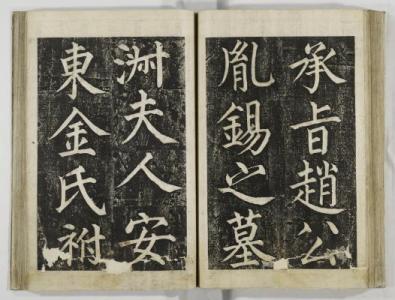 承旨趙公
胤錫之墓
淑夫人安
東金氏祔